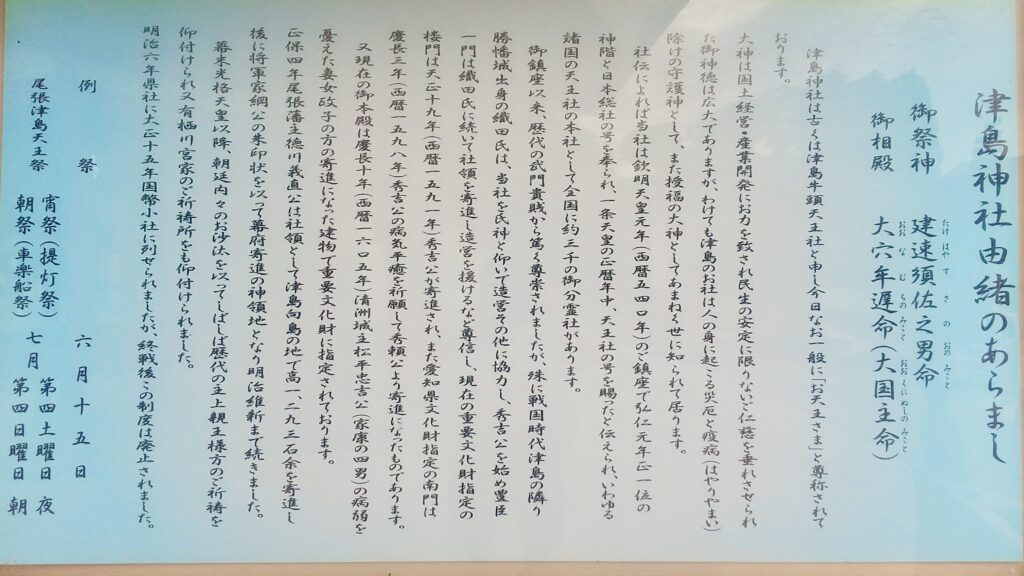 津島神社由緒のあらまし
御祭神　建速須佐之男命
たけはやすさのおのみこと
御相殿　大穴牟遅命（大国主命）
おおなむちのみこと　おおくにぬしのみこと
津島神社は古くは津島牛頭天王社と申し今日なお一般に「お天王さま」と尊称されて
おります。
大神は国土経営・産業開発にお力を致され民生の安定に限りないご仁慈を垂れさせられ
た御神徳は広大でありますが、わけても津島のお社は人の身に起こる災厄と疫病（はやりやまい）
除けの守護神として、また授福の大神としてあまねく世に知られて居ります。
社伝によれば当社は欽明天皇元年（西暦五四〇年）のご鎮座で弘仁元年正一位の
神階と日本総社の号を奉られ、一条天皇の正暦年中、天王社の号を賜ったと伝えられ、いわゆる
諸国の天王社の本社として全国に約三千の御分霊社があります。
御鎮座以来、歴代の武門貴賤から篤く尊崇されましたが、殊に戦国時代津島の隣り
勝幡城出身の織田氏は、当社を氏神と仰いで造営その他に協力し、秀吉公を始め豊臣
一門は織田氏に続いて社領を寄進し造営を援けるなど尊信し、現在の重要文化財指定の
楼門は天正十九年（西暦一五九一年）秀吉公が寄進され、また愛知県文化財指定の南門は
慶長三年（西暦一五九八年）秀吉公の病気平癒を祈願して秀頼公より寄進になったものであります。
又現在の御本殿は慶長十年（西暦一六〇五年）清洲城主松平忠吉公（家康の四男）の病弱を
憂えた妻女政子の方の寄進になった建物で重要文化財に指定されております。
正保四年尾張藩主徳川義直公は社領として津島向島の地で高一、二九三石余を寄進し
後に将軍家綱公の朱印状を以って幕府寄進の神領地となり明治維新まで続きました。
幕末光格天皇以降、朝廷内々のお沙汰を以ってしばしば歴代の主上親王様方のご祈祷を
仰付けられ又有栖川宮家のご祈祷所をも仰付けられました。
明治六年県社に大正十五年国幣小社に列せられましたが、終戦後この制度は廃止されました。
例祭　六月十五日
尾張津島天王祭　宵祭（提灯祭）七月　第四土曜日　夜
朝祭（車楽船祭）　第四日曜日　朝